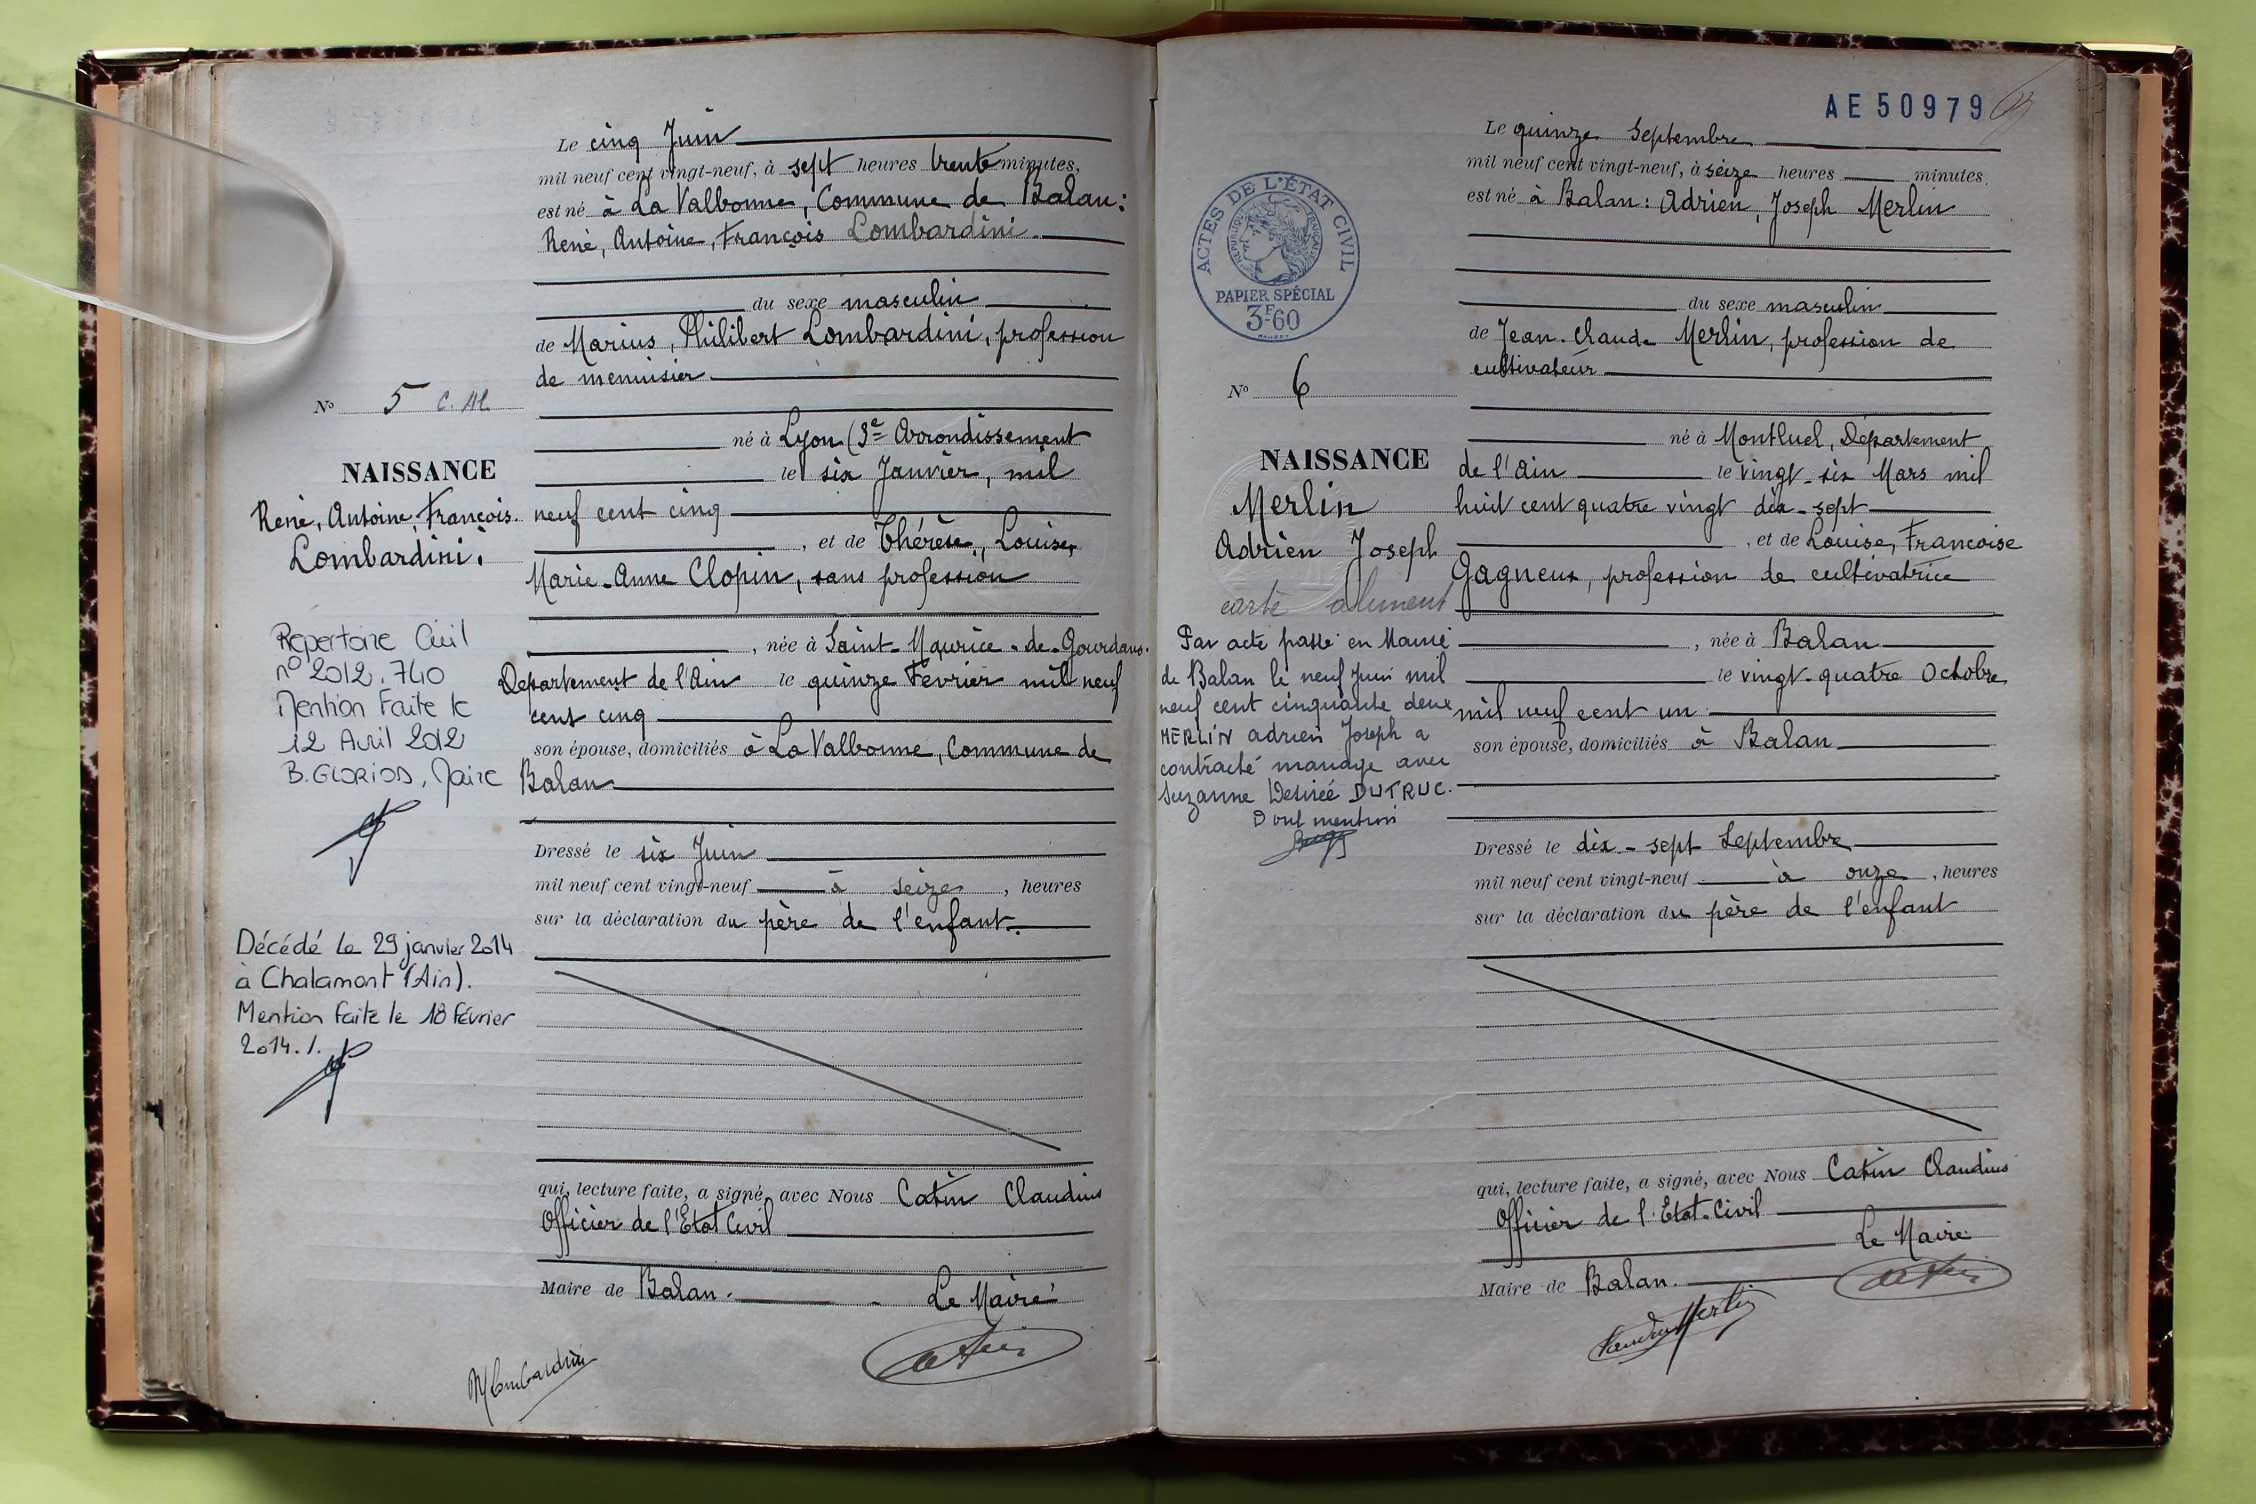 Le cinq Juin
mil neuf cent vingt-neuf, à sept heures trente minutes,
est né à La Valbonne, Commune de Balan:
René, Antoine, François Lombardini.
du sexe masculin
de Marius, Philibert Lombardini, profession
de menuisier
N° 5 C. Al.
né à Lyon (3e Arrondissement
le six Janvier, mil
NAISSANCE
René, Antoine, François.
Lombardini.
neuf cent cinq
, et de Thérèse, Louise,
Marie-Anne Clopin, sans profession
, née à Saint-Maurice-de-Gourdans.
Département de l'Ain le quinze Février mil neuf
cent cinq
son épouse, domiciliés à La Valbonne, Commune de
Balan
Répertoire Civil
n° 2012.740
Mention Faite le
12 Avril 2012
B. GLORIOD, Maire
Dressé le six Juin
mil neuf cent vingt-neuf à seize, heures
sur la déclaration du père de l'enfant.
Décédé le 29 janvier 2014
à Chalamont (Ain).
Mention faite le 18 février
2014./.
qui, lecture faite, a signé, avec Nous Catin Claudius
Officier de l'Etat Civil
Maire de Balan. Le Maire
MLombardini
AE50979
Le quinze Septembre
mil neuf cent vingt-neuf, à seize heures minutes,
est né à Balan: Adrien, Joseph Merlin
ACTES DE L'ÉTAT CIVIL
RÉPUBLIQUE FRANÇAISE
PAPIER SPÉCIAL
3F60
du sexe masculin
de Jean-Claude Merlin, profession de
cultivateur
N° 6
né à Montluel, Département
de l'Ain le vingt-six Mars mil
huit cent quatre vingt dix-sept
NAISSANCE
Merlin
Adrien Joseph
carte aliment
, et de Louise, Françoise
Gagneux, profession de cultivatrice
, née à Balan
le vingt-quatre Octobre
mil neuf cent un
son épouse, domiciliés à Balan
Par acte passé en Mairie
de Balan le neuf Juin mil
neuf cent cinquante deux
MERLIN Adrien Joseph a
contracté mariage avec
Suzanne Désirée DUTRUC.
Dont mention
Dressé le dix-sept Septembre
mil neuf cent vingt-neuf à onze, heures
sur la déclaration du père de l'enfant
qui, lecture faite, a signé, avec Nous Catin Claudius
Officier de l'Etat-Civil
Le Maire
Maire de Balan.